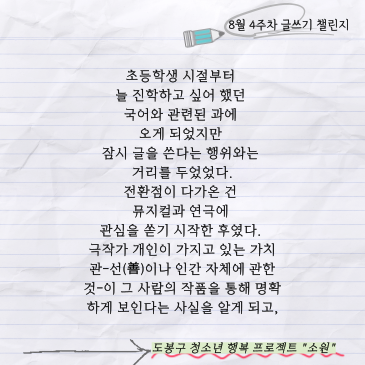 8월 4주차 글쓰기 챌린지
초등학생 시절부터
늘 진학하고 싶어 했던
국어와 관련된 과에
오게 되었지만
잠시 글을 쓴다는 행위와는
거리를 두었었다.
전환점이 다가온 건
뮤지컬과 연극에
관심을 쏟기 시작한 후였다.
극작가 개인이 가지고 있는 가치
관-선(善)이나 인간 자체에 관한
것-이 그 사람의 작품을 통해 명확
하게 보인다는 사실을 알게 되고,
도봉구 청소년 행복 프로젝트 "소원"